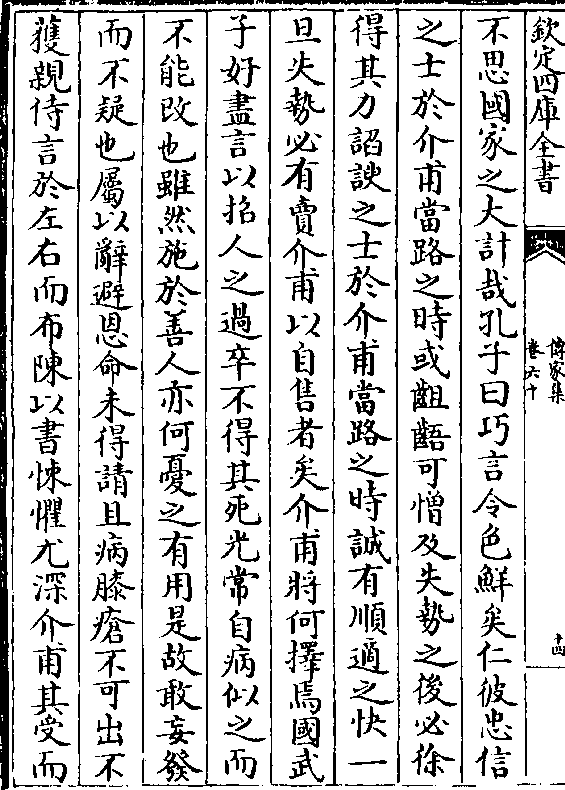 欽定四庫全書
傳家集
卷六十
十四
不思國家之大計哉孔子曰巧言令色鮮矣仁彼忠信
之士於介甫當路之時或齟齬可憎及失勢之後必徐
得其力諂諛之士於介甫當路之時誠有順適之快一
旦失勢必有賣介甫以自售者矣介甫將何擇焉國武
子好盡言以招人之過卒不得其死光常自病似之而
不能改也雖然施於善人亦何憂之有用是故敢妄發
而不疑也屬以辭避恩命未得請且病膝瘡不可出不
獲親侍言於左右而布陳以書悚懼尤深介甫其受而